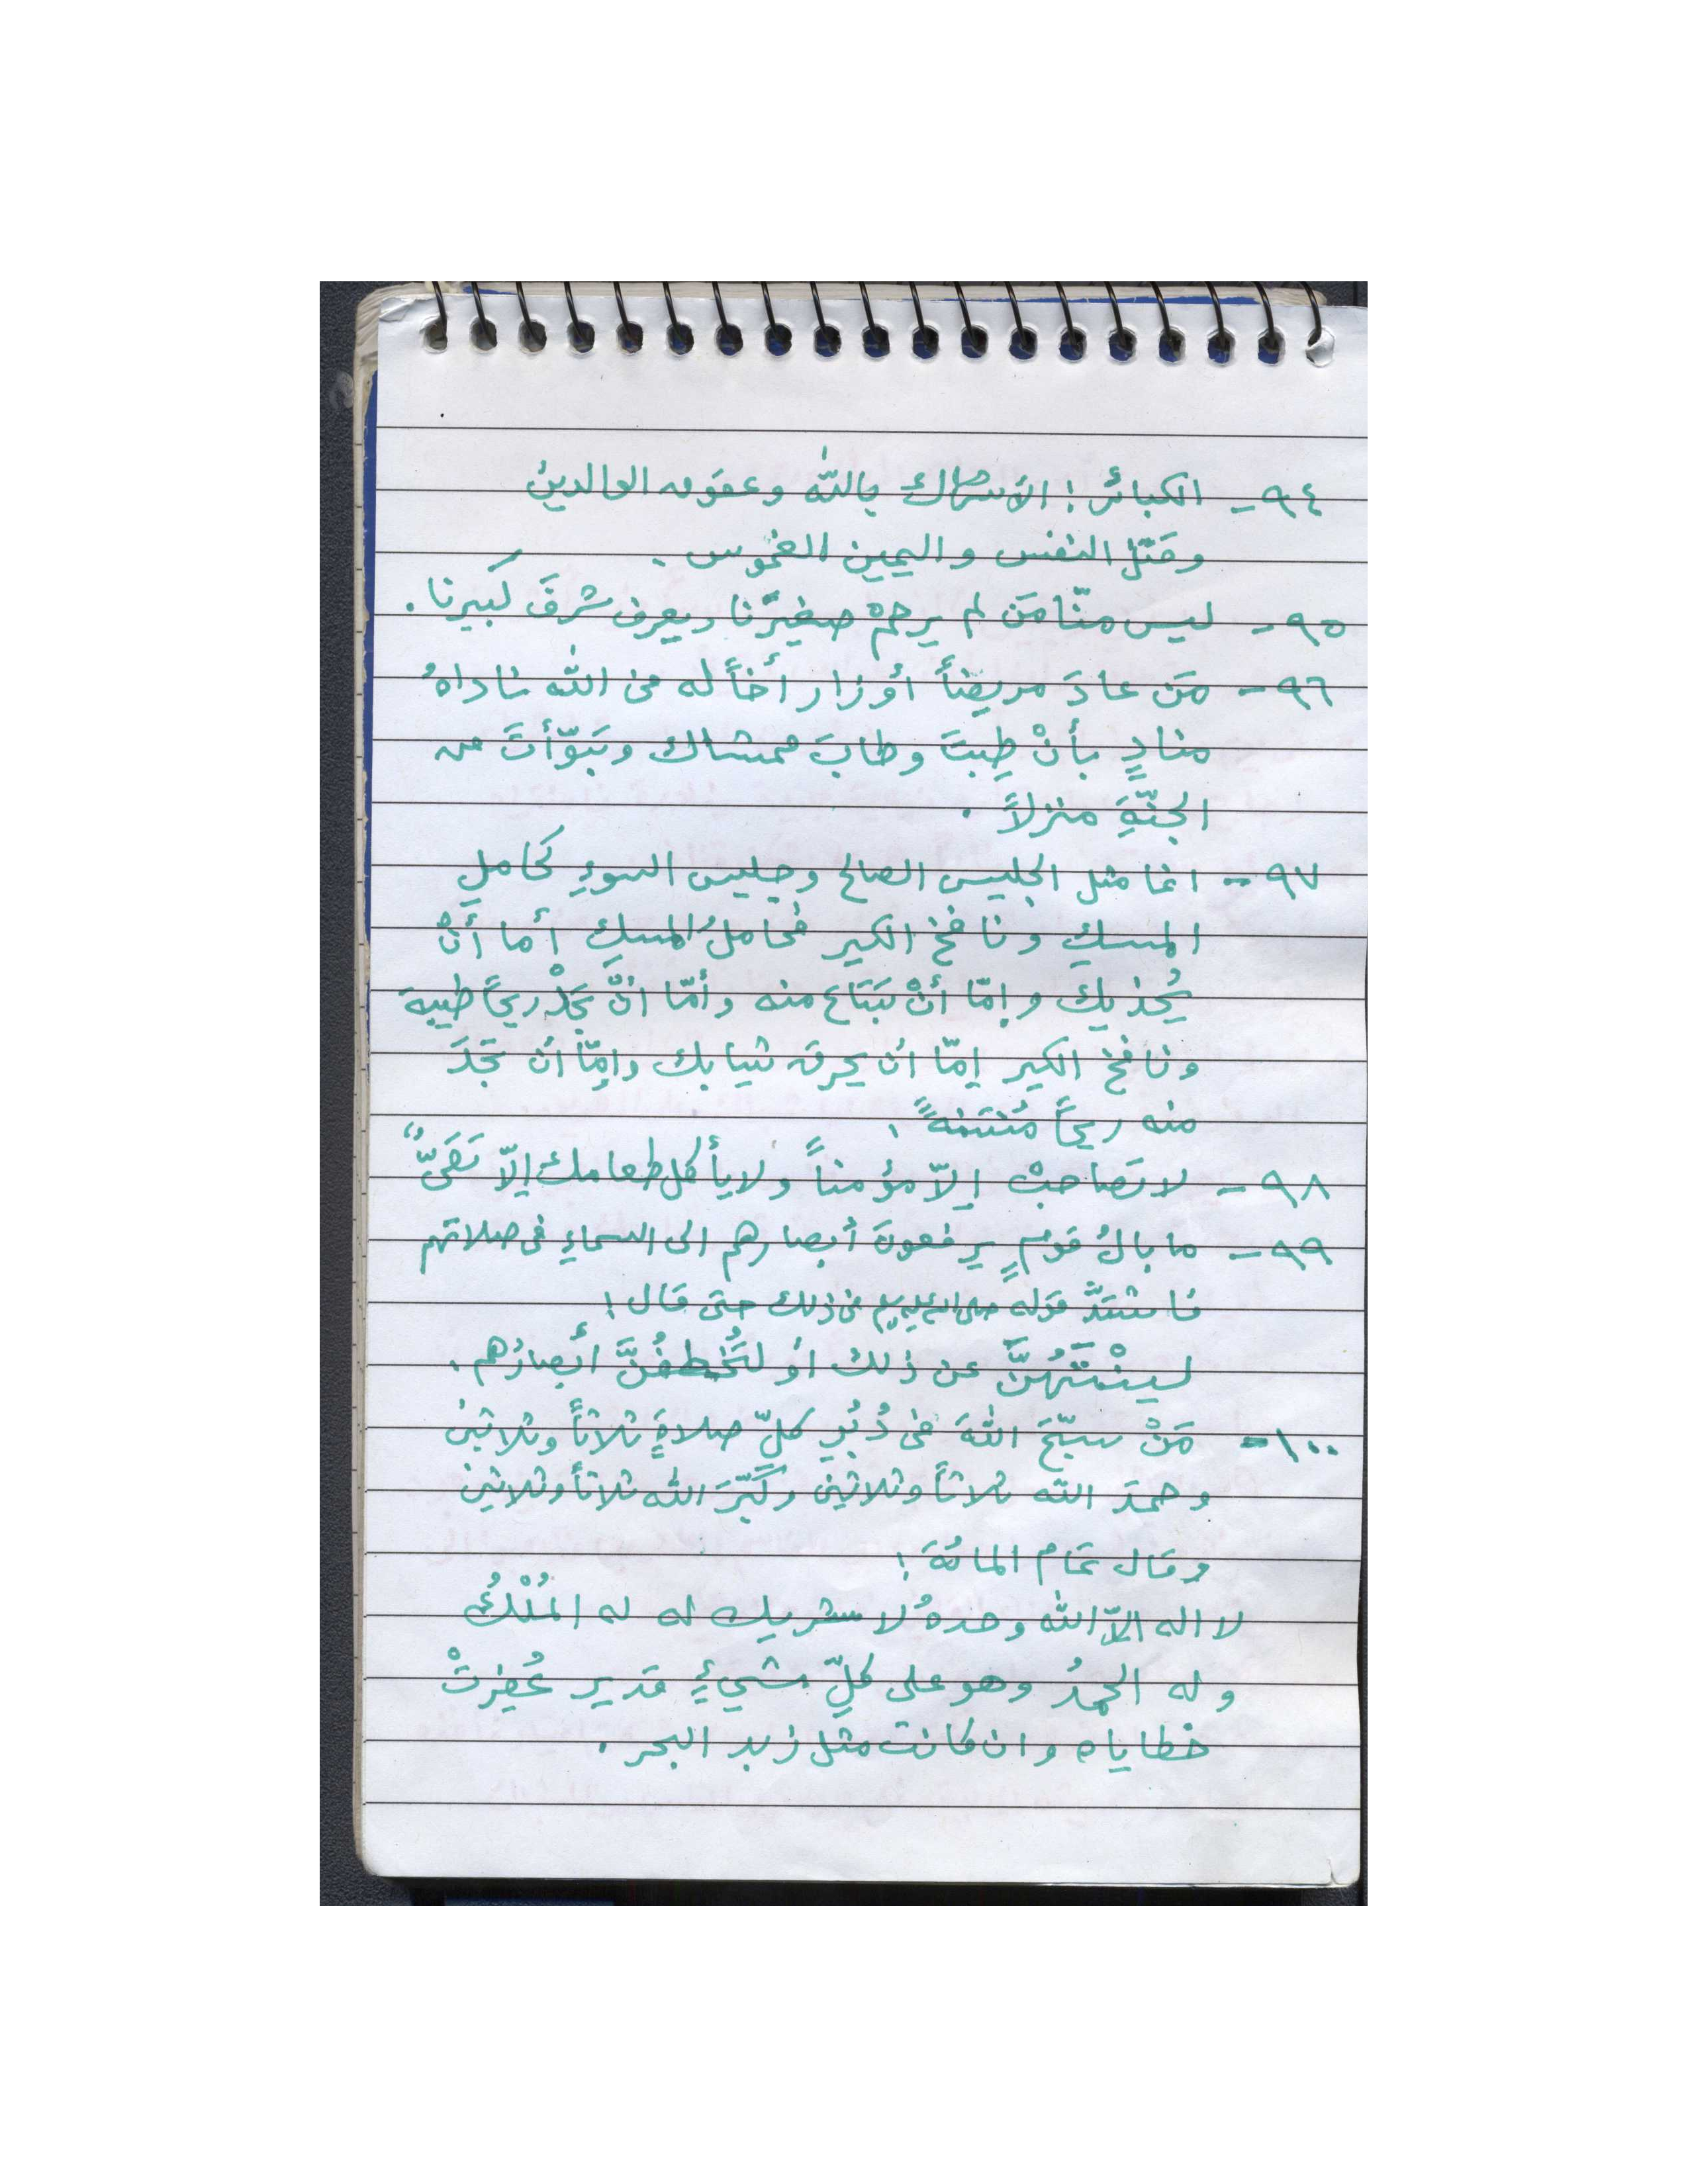 ٩٤- الكبائر: الاشراك بالله وعقوق الوالدين
وقتل النفس واليمين الغموس .
٩٥- ليس منّا مَن لم يرحمْ صغيرَنا ويعرف شرفَ كَبيرنا .
٩٦- مَن عادَ مريضاً أو زار أخاً له في الله ناداهُ
منادٍ بأنْ طِبتَ وطابَ ممشاك وتَبَوّأتَ من
الجنّةِ منزلاً .
٩٧- انما مثل الجليس الصالح وجليس السوءِ كحاملِ
المسكِ ونافخ الكير فحاملُ المسكِ أما أنْ
يُحذيكَ وإمّا أنْ تَبتَاع منه وأمّا انْ تجدْ ريحاً طيبة
ونافخ الكير إمّا ان يحرق ثيابك وامّا ان تجدَ
منه ريحاً مُنتنةً .
٩٨- لا تصَاحبْ إلاّ مؤمناً ولا يأكل طعامك إلاّ تَقىٌّ
٩٩- ما بالُ قومٍ يرفعونَ أبصارهم الى السماءِ فى صلاتهم
فاشتدَّ قوله صلى الله عليه وسلم في ذلك حتى قال :
لينْتَهُنَّ عن ذلك أو لتُخطفُنَّ أبصارُهم .
١٠٠- مَنْ سبّحَ اللهَ فى دُبُرِ كلِّ صلاةٍ ثلاثاً وثلاثين
وحمدَ الله ثلاثاً وثلاثين وكَبّرَ الله ثلاثاً وثلاثين
وقال تمام المائة :
لا اله الاّ الله وحدهُ لا شريك له له المُلْكُ
وله الحمدُ وهو على كلِّ شيءٍ قدير غُفِرتْ
خطاياه وان كانت مثل زبد البحر .